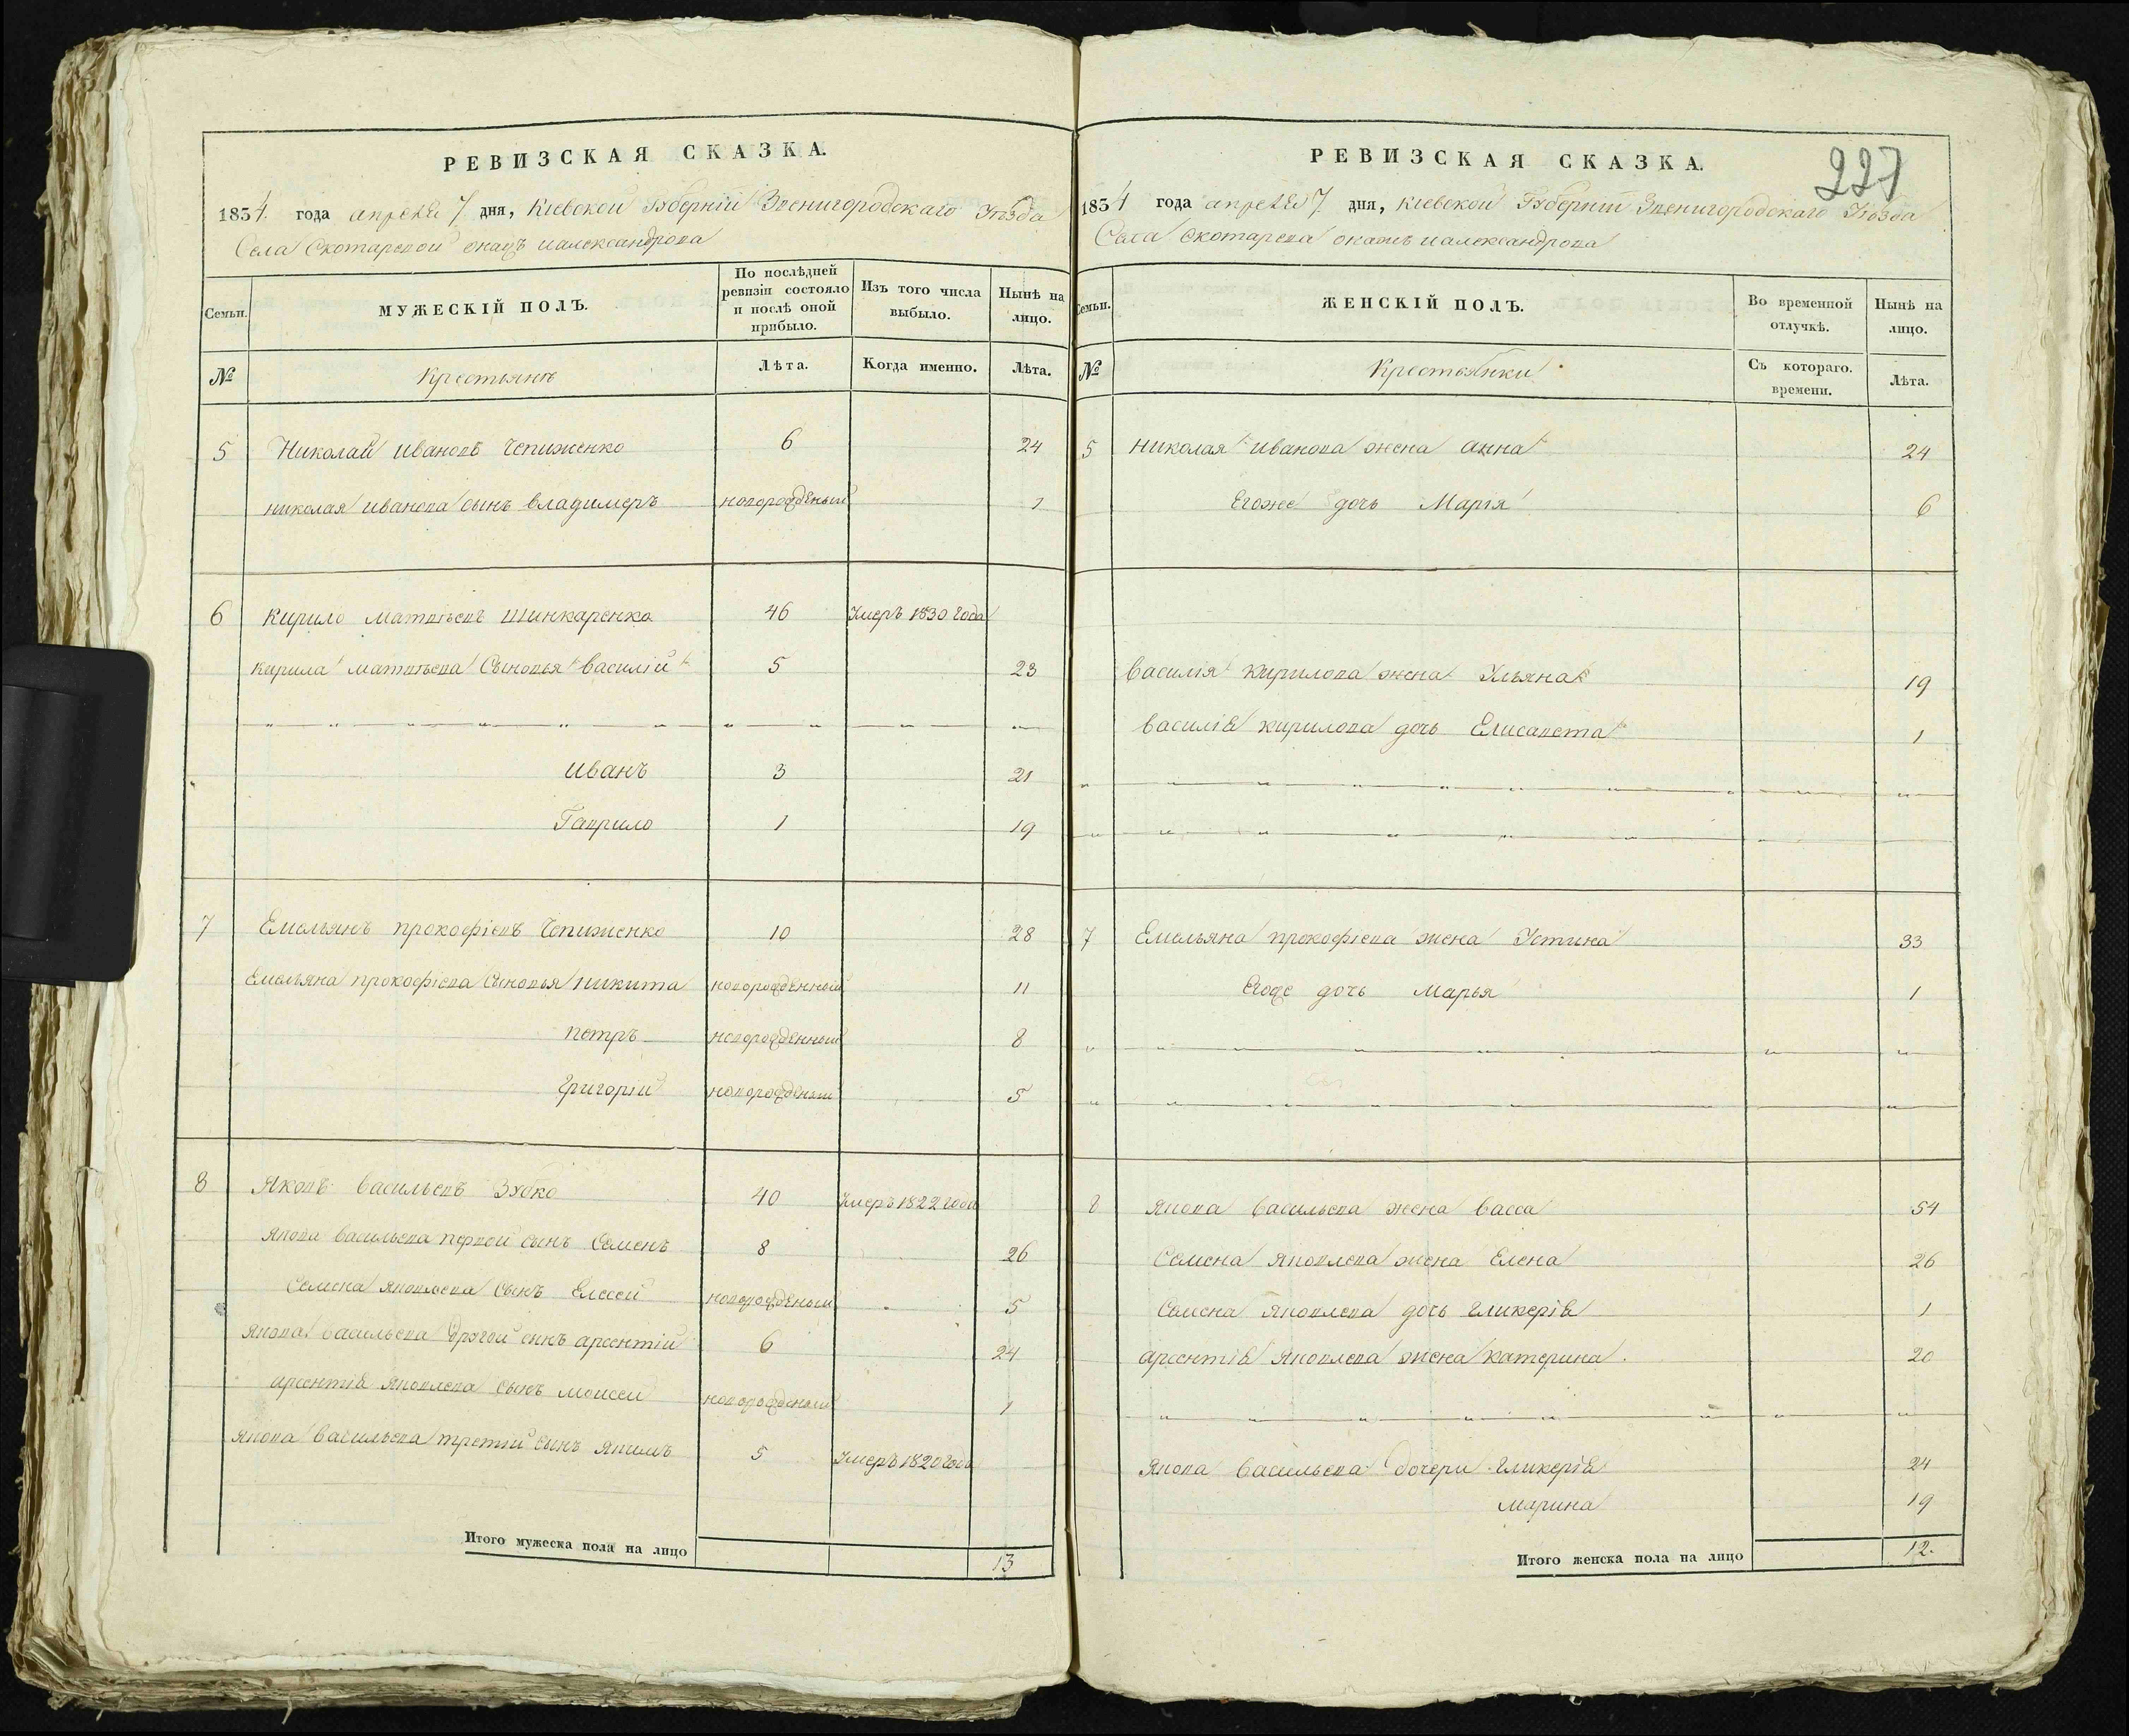 РЕВИЗСКАЯ СКАЗКА.
1834 года апреля 7 дня, Киевской Губерніи Звенигородскаго Уѣзда
Села Скотаревой
МУЖЕСКІЙ ПОЛЪ.
Семьи.
По послѣдней ревизіи состояло и послѣ оной прибыло.
Изъ того числа выбыло.
Нынѣ на лицо.
№
Крестьянѣ
Лѣта.
Когда именно.
Лѣта.
5 Николай Ивановъ Чепиженко 6 24
николая Иванова сынъ владимеръ новорожденный 1
6 Кирило Матвіевъ Шинкаренко 46 Умеръ 1830 года
Кирила Матвіева Сыновья василій 5 23
Иванъ 3 21
Гаврило 1 19
7 Емельянъ прокофіевъ Чепиженко 10 28
Емельяна прокофіева Сыновья никита новорожденный 11
петръ новорожденный 8
Григорій новорожденый 5
8 Яковъ васильевъ Зубко 40 Умеръ 1822 года
Якова васильева первой сынъ Семенъ 8 26
Семена Яковлева Сынъ Елесей новорожденый 5
Якова васильева другой сынъ арсентій 6 24
арсентія Яковлева Сынъ моисей новорожденый 1
Якова васильева третій сынъ якимъ 5 Умеръ 1820 года
Итого мужеска пола на лицо 13
227
РЕВИЗСКАЯ СКАЗКА.
1834 года апреля 7 дня, Киевской Губерніи Звенигородскаго Уѣзда
Села Скотарева
Семьи.
ЖЕНСКІЙ ПОЛЪ.
Во временной отлучкѣ.
Нынѣ на лицо.
№
Крестьянки
Съ котораго. времени.
Лѣта.
5 николая Иванова жена анна 24
Егоже дочь Марія 6
василія Кирилова жена Ульяна 19
василія Кирилова дочь Елисавета 1
7 Емельяна прокофіева жена Устина 33
Егоже дочь Марья 1
8 Якова васильева жена васса 54
Семена Яковлева жена Елена 26
Семена Яковлева дочь гликерія 1
арсентія Яковлева жена катерина. 20
Якова васильева дочери гликерія 24
марина 19
Итого женска пола на лицо 12.